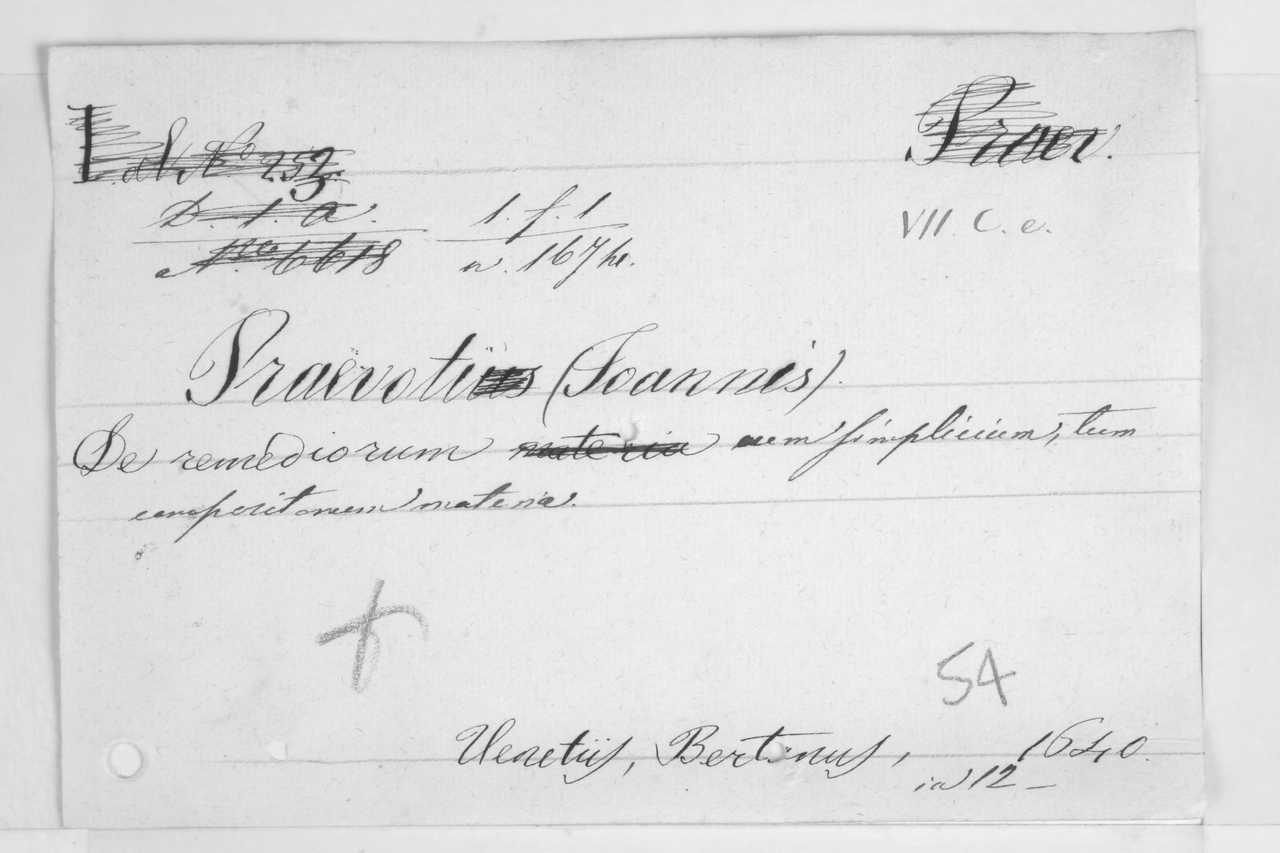 L. d. N. No 253. Praev.
D. 1. a. 1. f. 1
No. 6618 a. 167 k.
VII. C. e.
Praevotii (Joannis).
De remediorum materia cum simplicium, tum
compositorum materia.
54
Venetiis, Bertanus, 1640.
in 12 –